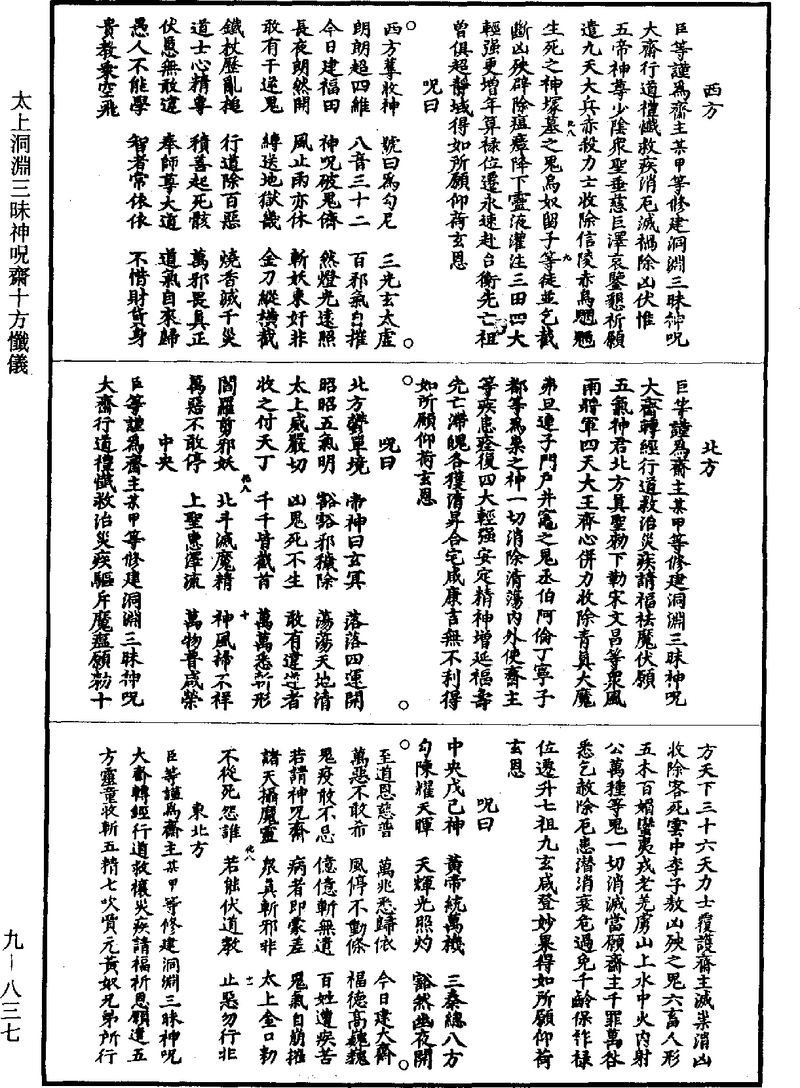 太上洞淵三昧神呪齋十方懺儀
西方
臣等謹為齋主某甲等修建洞淵三昧神呪
大齋行道禮懺救疾消厄滅禍除凶伏惟
五帝神尊少陰眾聖垂慈巨澤哀鑒懇祈願
遣九天大兵赤殺力士收除信陵赤烏魍魎
生死之神塚墓之鬼烏奴留子等徒並乞截
斷凶殃辟除瘟瘴降下靈液灌注三田四大
輕強更增年算祿位遷永速赴台衡先亡祖
曾俱超靜域得如所願仰荷玄恩
呪曰
西方蓐收神 號曰為勾尼 三光玄太虛
朗朗超四維 八音三十二 百邪氣自摧
今日建福田 神呪破鬼儔 然燈光遠照
長夜朗然開 風止雨亦休 斬妖束奸非
敢有干逆鬼 縛送地獄幾 金刀縱橫截
鐵杖歷亂搥 行道除百惡 燒香滅千災
道士心精專 積善起死骸 萬邪畏真正
伏愿無敢違 奉師尊大道 道氣自來歸
愚人不能學 智者常依依 不惜財貨身
貴教乘空飛
北方
臣等謹為齋主某甲等修建洞淵三昧神呪
大齋轉經行道救治災疾請福祛魔伏願
五氣神君北方真聖勑下勒宋文昌等眾風
雨將軍四天大王齊心併力收除青員大魔
弗且連子門戶井竈之鬼丞伯阿倫丁寧子
都等為祟之神一切消除清蕩內外使齋主
等疾患痊復四大輕強安定精神增延福壽
先亡滯魄各獲濟昇合宅咸康吉無不利得
如所願仰荷玄恩
呪曰
北方鬱單境 帝神曰玄冥 落落四運開
昭昭五氣明 豁豁邪穢除 蕩蕩天地清
太上威嚴切 凶鬼死不生 敢有違逆者
收之付天丁 千千皆截首 萬萬悉斬形
閻羅剪邪妖 北斗滅魔精 神風掃不祥
萬惡不敢停 上聖惠澤流 萬物普咸榮
中央
臣等謹為齋主某甲等修建洞淵三昧神呪
大齋行道禮懺救治災疾驅斥魔瘟願勑十
方天下三十六天力士覆護齋主滅祟消凶
收除客死雲中李子敖凶殃之鬼六畜人形
五木百媚蠻夷戎老羌虜山上水中火內射
公萬種等鬼一切消滅當願齋主千罪萬咎
悉乞赦除厄患潛消衰危過免千齡保祚祿
位遷升七祖九玄咸登妙果得如所願仰荷
玄恩
呪曰
中央戊己神 黃帝統萬機 三秦總八方
勾陳耀天暉 天輝光照灼 豁然幽夜開
至道恩慈普 萬兆悉歸依 今日建大齋
萬惡不敢希 風停不動條 福德高巍巍
鬼疫敢不忌 億億斬無遺 百姓遭疾苦
若請神呪齋 病者即蒙差 鬼氣自崩摧
諸天攝魔靈 眾真斬邪非 太上金口勑
不從死怨誰 若能伏道教 止惡勿行非
東北方
臣等謹為齋主某甲等修建洞淵三昧神呪
大齋轉經行道救禳災疾請福祈恩願遣五
方靈童收斬五精七吹質元黃奴兄弟所行
九-八三七